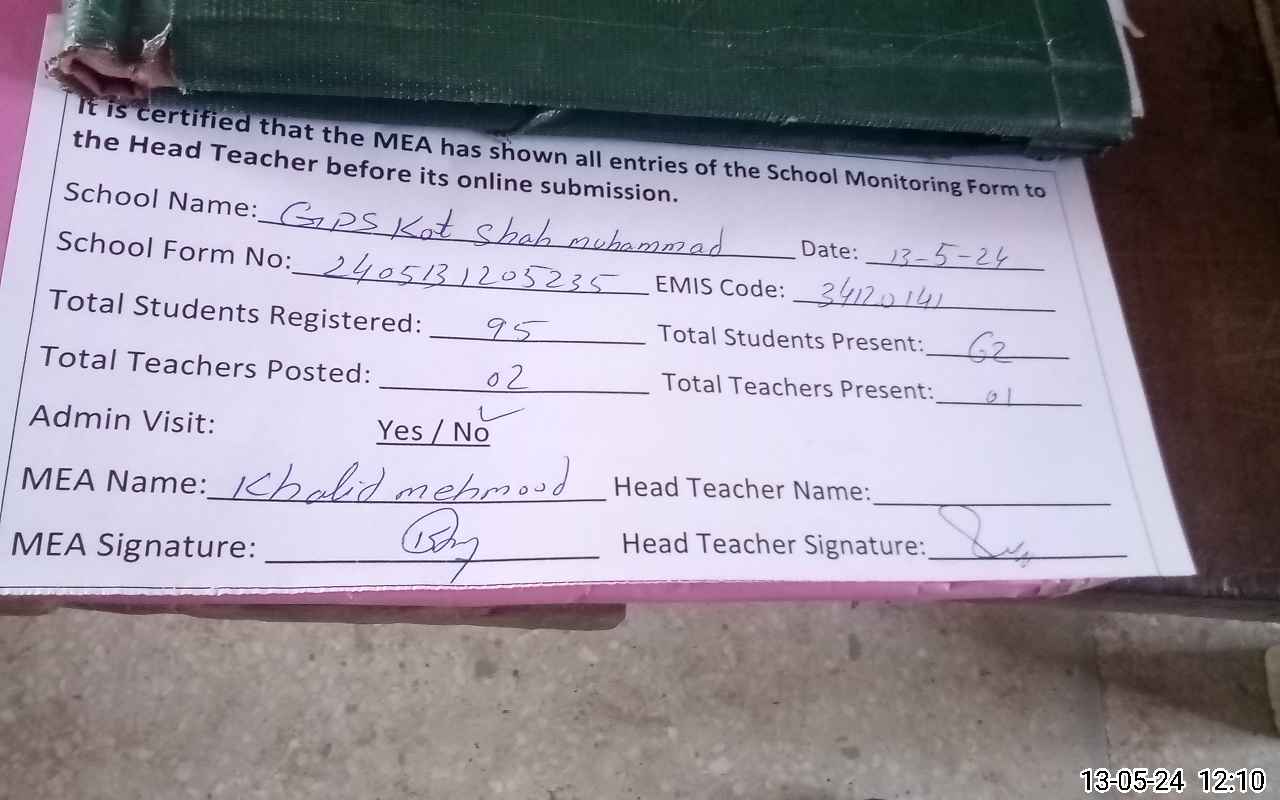 It is certified that the MEA has shown all entries of the School Monitoring Form to
the Head Teacher before its online submission.
School Name: GPS Kot Shah muhammad Date: 13-5-24
School Form No: 2405131205235 EMIS Code: 34120141
Total Students Registered: 95 Total Students Present: 62
Total Teachers Posted: 02 Total Teachers Present: 01
Admin Visit: Yes / No ✓
MEA Name: Khalid mehmood Head Teacher Name:
MEA Signature: Head Teacher Signature:
13-05-24 12:10